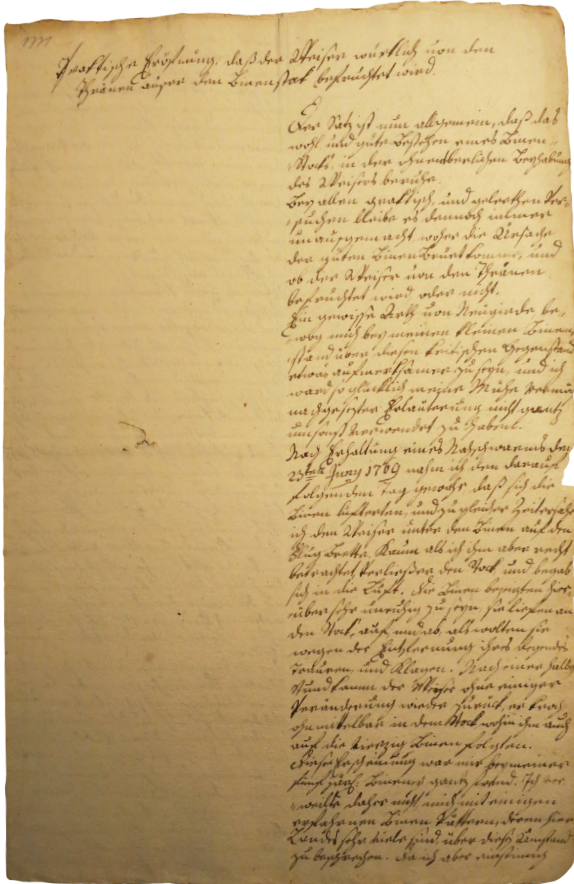 1771
Praktische Eröfnung, daß der Weiser würklich von den
Thränen auser den Binenstok befruchtet wird.
Der Satz ist nun allgemein, daß das
wohl und gute Bestehen eines Binen-
stocks, in der Beyhabung
des Weisers beruhe.
Bey allen praktisch, und gelerthen Ver-
suchen bleibe es dennoch imer
unausgemacht woher die Ursache
der guten Binen Bruet komme, und
ob der Weiser von den Thränen
befruchtet wird oder nicht.
Ein gewisse Arth von Neugierde be-
wog mich bey meinen kleinen Binen-
stand über diesen kritischen Gegenstand
etwas aufmerksamer zu seyn, und ich
ward so glücklich meine Mühe vermög
nachgesezter Erläuterung nicht gantz
umsonst verwendet zu haben.
Nach Erhaltung eines Nachschwarms den
23ten Juny 1769 nahm ich den darauf
folgenden Tag gewahr, daß sich die
Binen lüfterten, und zu gleicher Zeit sahe
ich den Weiser unter den Binen auf den
Flug Brette. Kaum als ich ihn aber recht
betrachtet, verließ er den Stock, und begab
sich in die Luft. Die Binen begonten hier-
über sehr unruhig zu seyn, sie liefen an
den Stock, auf und ab, als wolten sie
wegen der Entfernung ihres Regenten
Trauren, und Klagen. Nach einer halben
Stund kamm der Weiser ohne einiger
Veränderung wieder zurück, er kroch
ohnmittelbar in dem Stock wohin ihm auch
auf die vierzig Binen folgten.
Diese Erscheinung war mir bey meiner
Binens gantz fremd. Ich ver-
weilte daher nicht mich mit einigen
erfahrnen Binen Vättern, deren hier
Landes sehr viele sind, über diesen Umstand
zu besprechen. Da ich aber